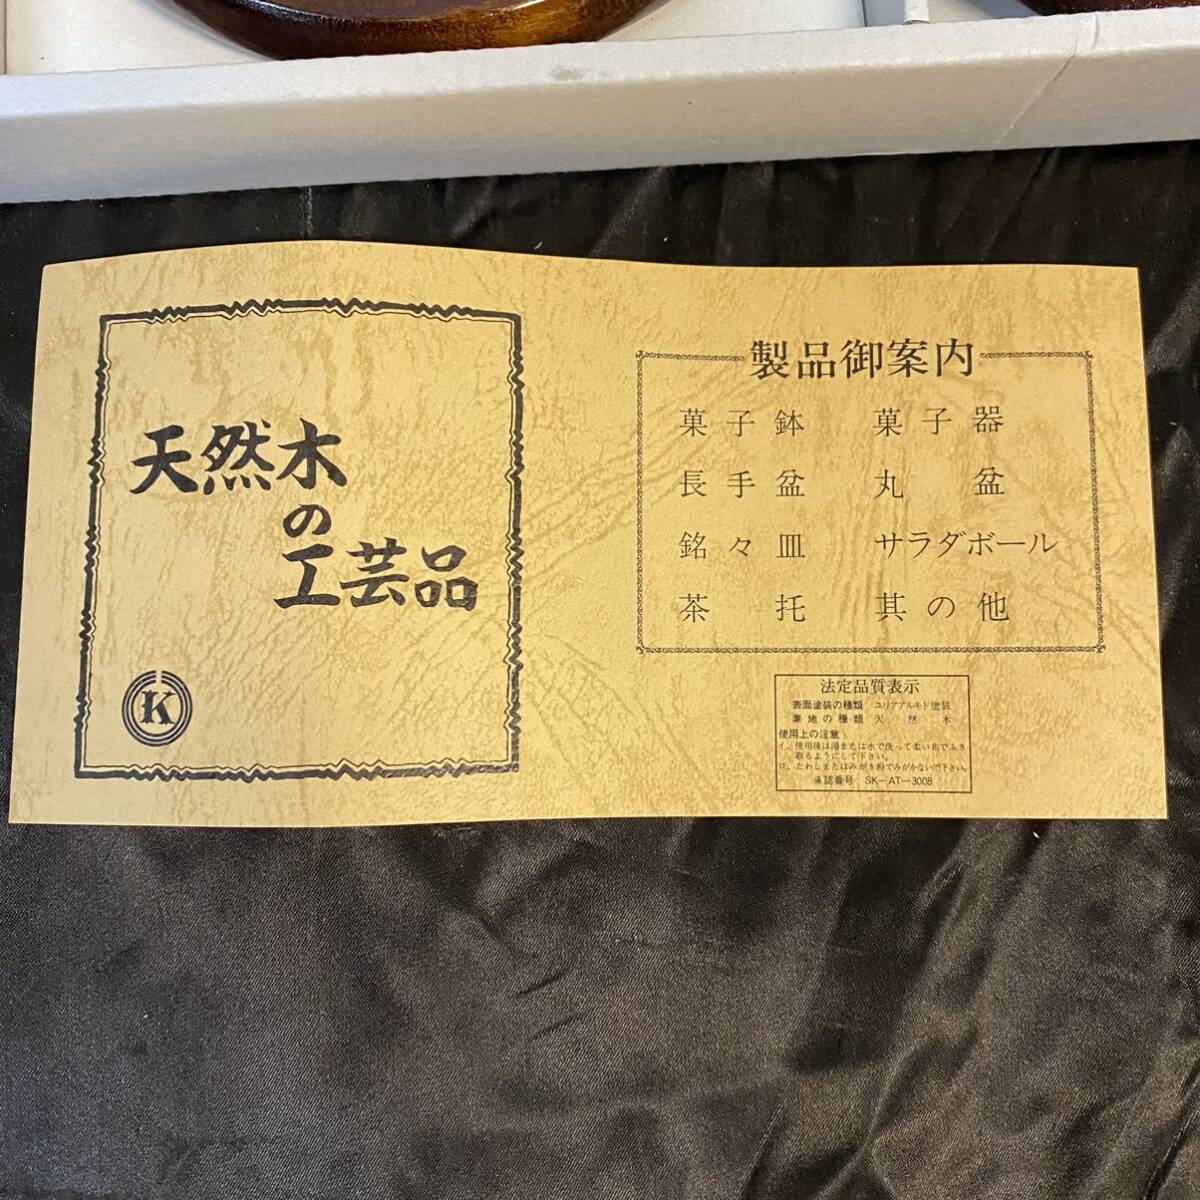 天然木
の
工芸品
K
製品御案内
菓子鉢 菓子器
長手盆 丸盆
銘々皿 サラダボール
茶托 其の他
法定品質表示
表面塗装の種類 ユリアアルキド塗装
素地の種類 天然木
使用上の注意
イ、使用後は湯または水で洗って柔い布でふき
取るようにして下さい。
ロ、たわしまたはみがき粉でみがかないで下さい。
承認番号 SK-AT-3008